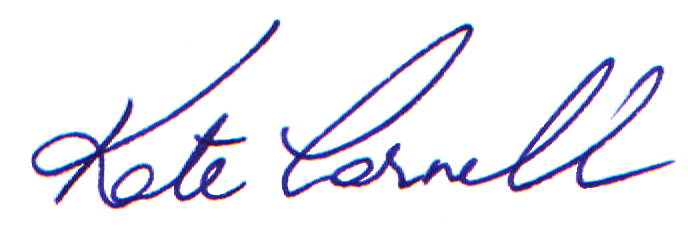 Kate Cornell